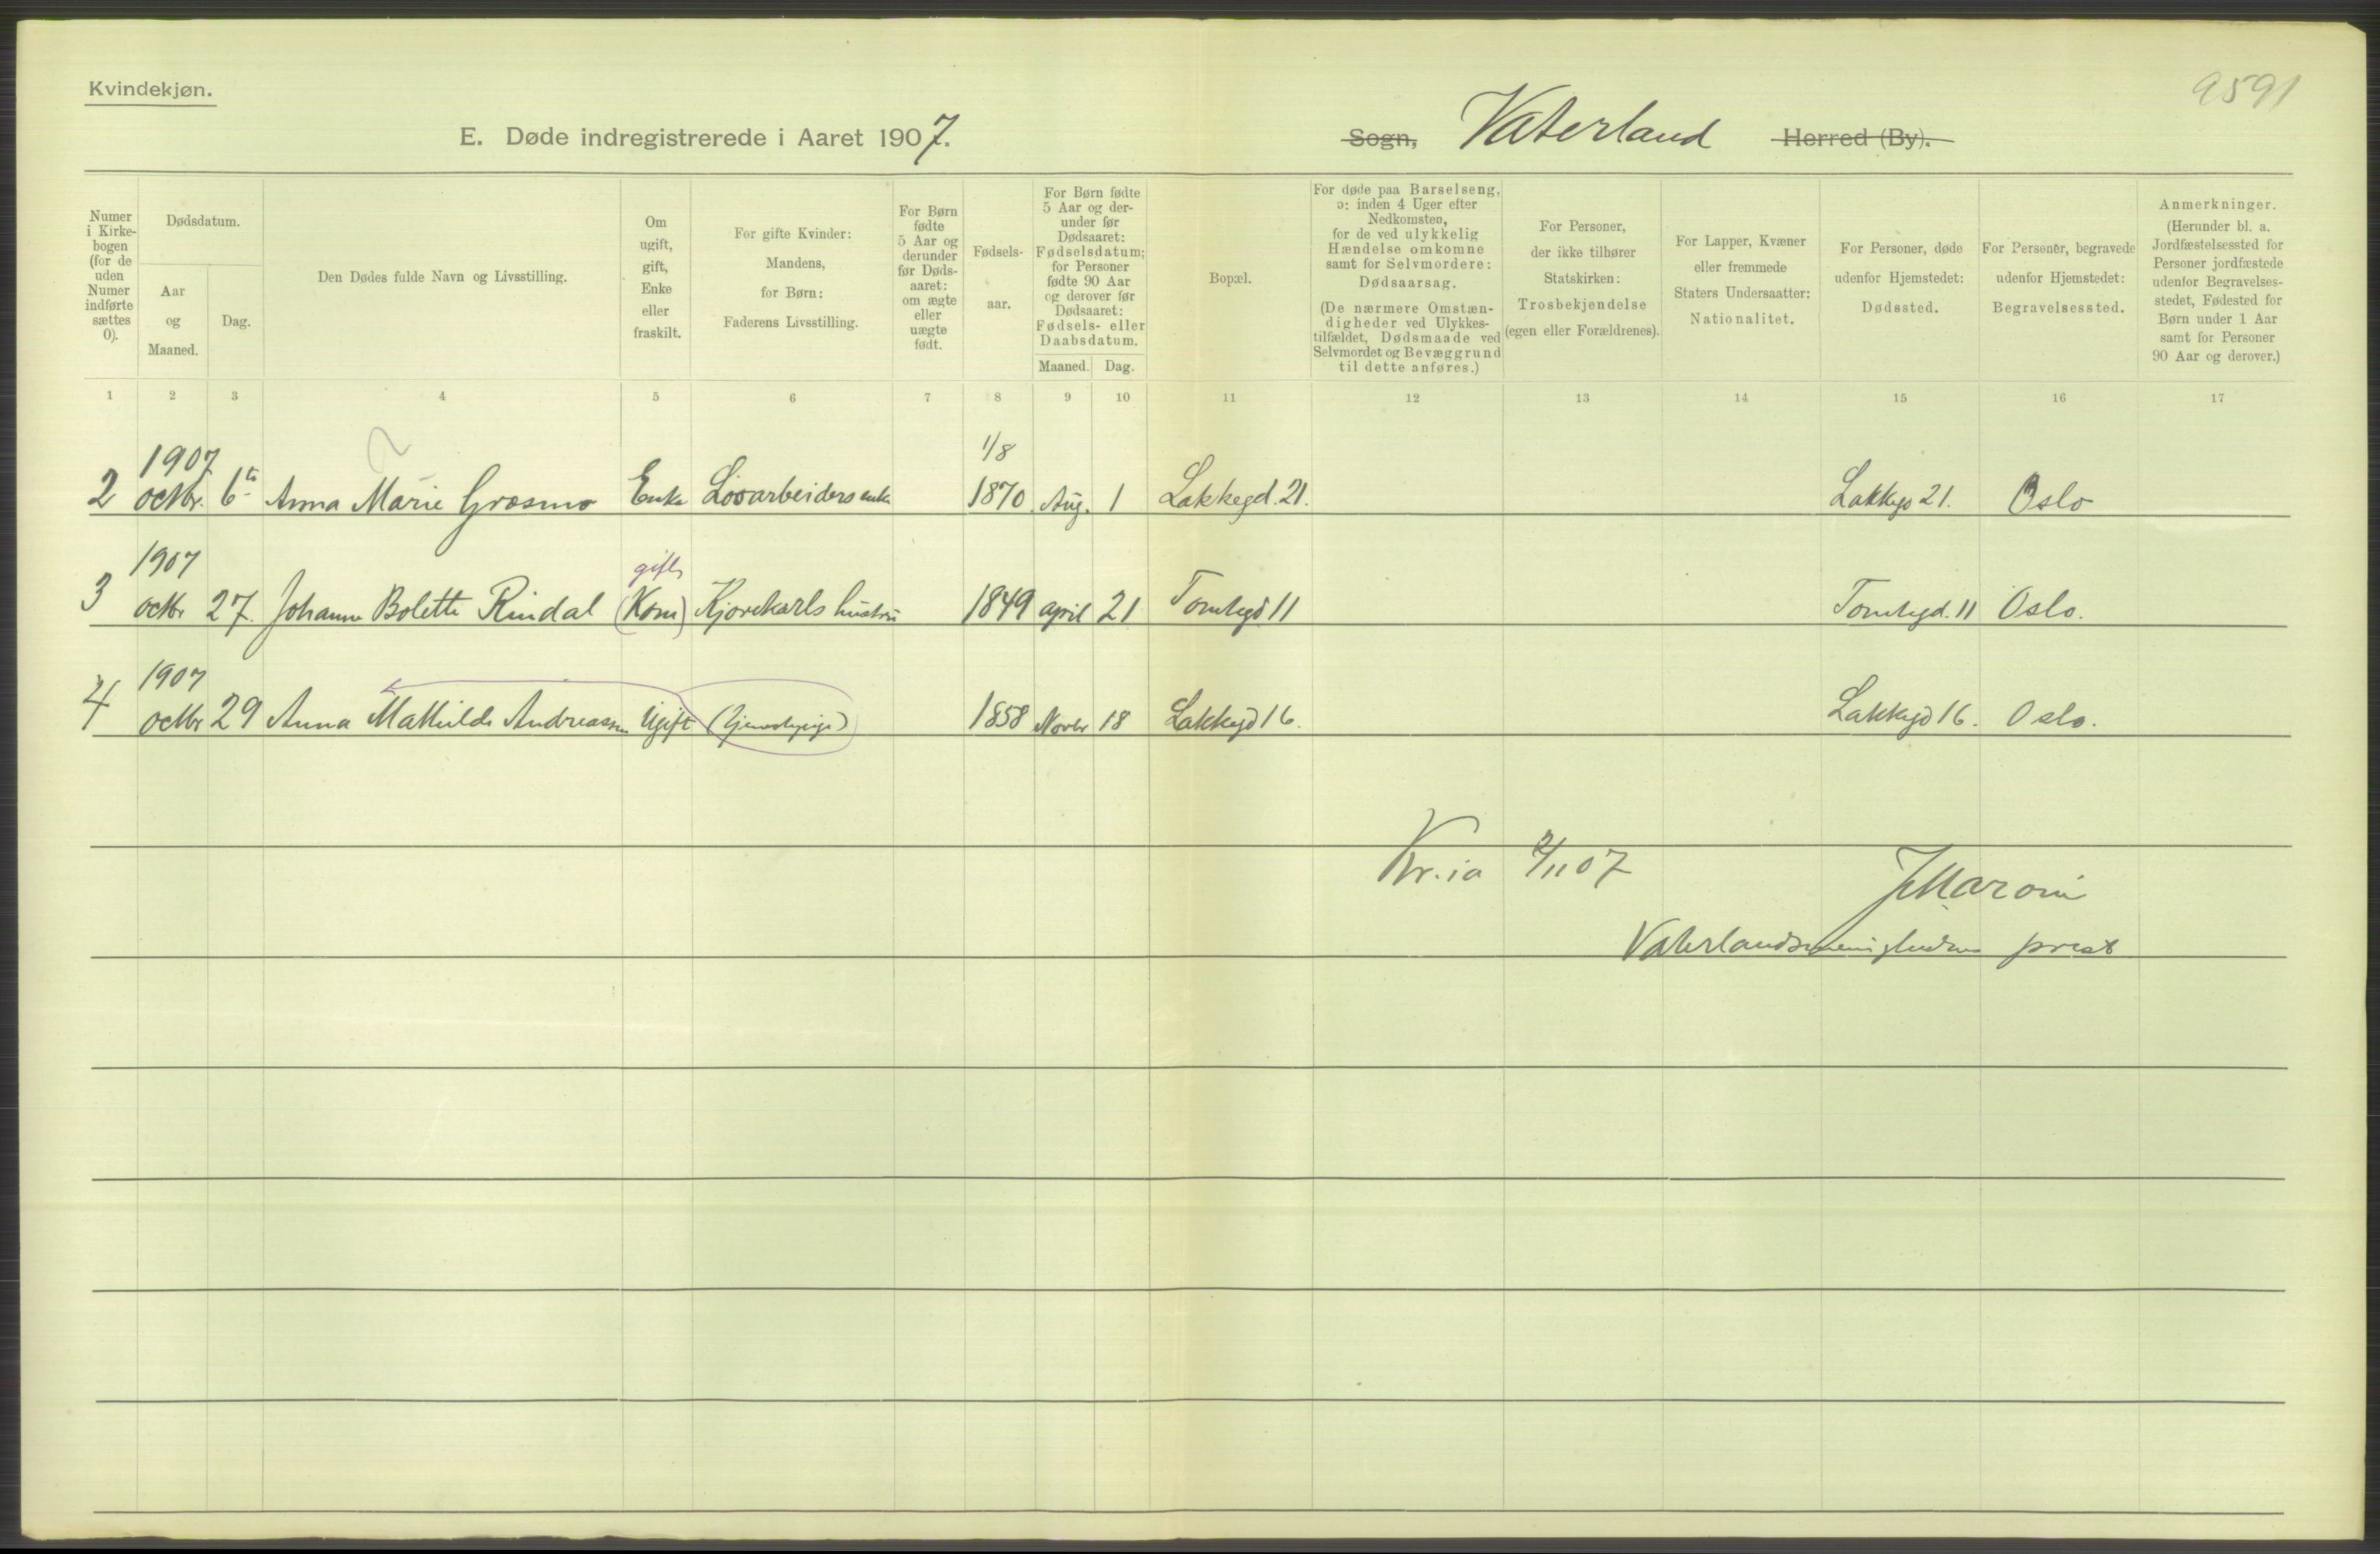 Kvindekjøn.
9591
E. Døde indregistrerede i Aaret 1907.
Sogn, Vaterland Herred (By).
Numer i Kirke-bogen (for de uden Numer indførte sættes 0).
Dødsdatum.
Aar og Maaned.
Dag.
Den Dødes fulde Navn og Livsstilling.
Om ugift, gift, Enke eller fraskilt.
For gifte Kvinder: Mandens, for Børn: Faderens Livsstilling.
For Børn fødte 5 Aar og derunder før Døds-aaret: om ægte eller uægte født.
Fødsels-aar.
For Børn fødte 5 Aar og der-under før Dødsaaret: Fødselsdatum; for Personer fødte 90 Aar og derover før Dødsaaret: Fødsels- eller Daabsdatum.
Maaned. Dag.
Bopæl.
For døde paa Barselseng, ɔ: inden 4 Uger efter Nedkomsten, for de ved ulykkelig Hændelse omkomne samt for Selvmordere: Dødsaarsag.
(De nærmere Omstæn-digheder ved Ulykkes-tilfældet, Dødsmaade ved Selvmordet og Bevæggrund til dette anføres.)
For Personer, der ikke tilhører Statskirken: Trosbekjendelse (egen eller Forældrenes).
For Lapper, Kvæner eller fremmede Staters Undersaatter: Nationalitet.
For Personer, døde udenfor Hjemstedet: Dødssted.
For Personer, begravede udenfor Hjemstedet: Begravelsessted.
Anmerkninger. (Herunder bl. a. Jordfæstelsessted for Personer jordfæstede udenfor Begravelses-stedet, Fødested for Børn under 1 Aar samt for Personer 90 Aar og derover.)
1 2 3 4 5 6 7 8 9 10 11 12 13 14 15 16 17
1907 1/8
2 octbr. 6te Anna Marie Grosmo Enke Løsarbeiders enke 1870 Aug. 1 Lakkegd. 21. Lakkegd 21. Oslo
1907 gift
3 octbr 27. Johanne Bolette Rindal (Kone) Kjørekarls hustru 1849 april 21 Tomtegd 11 Tomtegd. 11 Oslo.
1907
4 octbr 29 Anna Mathilde Andreassen Ugift (tjenestepige) 1858 Novbr 18 Lakkegd 16. Lakkegd 16. Oslo.
Kr.ia 2/11 07
Vaterlandsmenighedens prest